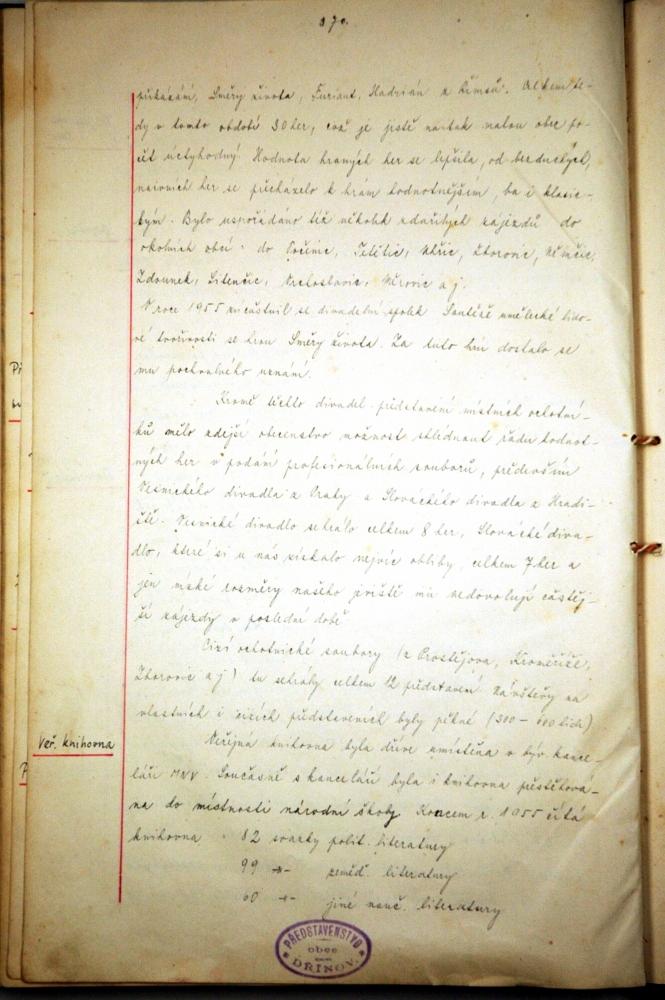 370.
přikázání, Směry života, Furiant, Hadrián z Římsů. Celkem te-
dy v tomto období 30 her, což je jistě na tak malou obec po-
čet úctyhodný. Hodnota hraných her se lepšila, od bezduchých,
naivních her se přecházelo k hrám hodnotnějším, ba i klasic-
kým. Bylo uspořádáno též několik zdařilých zájezdů do
okolních obcí: do Počenic, Tetětic, Uhřic, Zborovic, Němčic,
Zdounek, Litenčic, Vrchoslavic, Věrovic a j.
V roce 1955 zúčastnil se divadelní spolek Soutěže umělecké lido-
vé tvořivosti se hrou Směry života. Za tuto hru dostalo se
mu pochvalného uznání.
Kromě těchto divadel. představení místních ochotní-
ků mělo zdejší obecenstvo možnost shlédnout řadu hodnot-
ných her v podání profesionálních souborů, především
Vesnického divadla z Prahy a Slováckého divadla z Hradi-
ště. Vesnické divadlo sehrálo celkem 8 her, Slovácké diva-
dlo, které si u nás získalo nejvíc obliby, celkem 7 her a
jen nízké rozměry našeho jeviště mu nedovolují častěj-
ší zájezdy v poslední době.
Cizí ochotnické soubory (z Prostějova, Kroměříže,
Zborovic a j.) tu sehrály celkem 12 představení. Návštěvy na
vlastních i cizích představeních byly pěkné (300 - 400 lidí).
Veř. knihovna
Veřejná knihovna byla dříve umístěna v býv. kance-
láři MNV. Současně s kanceláří byla i knihovna přestěhová-
na do místnosti národní školy. Koncem r. 1955 čítá
knihovna 82 svazky polit. literatury
99 -"- zeměd. literatury
60 -"- jiné nauč. literatury
PŘEDSTAVENSTVO
obce
DŘÍNOV.